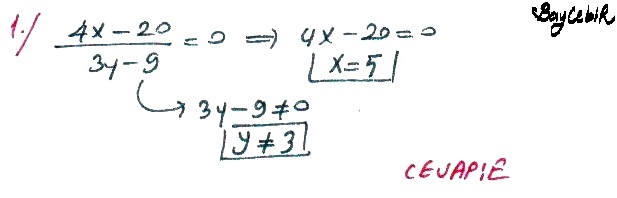 BayCebiR
1./ (4x-20)/(3y-9) = 0 ⇒ 4x-20=0
x=5
→ 3y-9≠0
y≠3
CEVAP:E